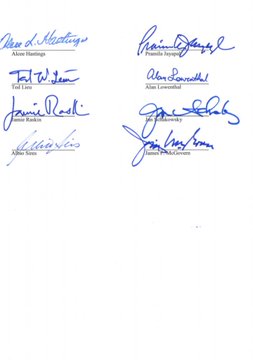 Alcee L. Hastings
Alcee Hastings
Pramila Jayapal
Pramila Jayapal
Ted W. Lieu
Ted Lieu
Alan Lowenthal
Alan Lowenthal
Jamie Raskin
Jamie Raskin
Jan Schakowsky
Jan Schakowsky
Albio Sires
Albio Sires
James P. McGovern